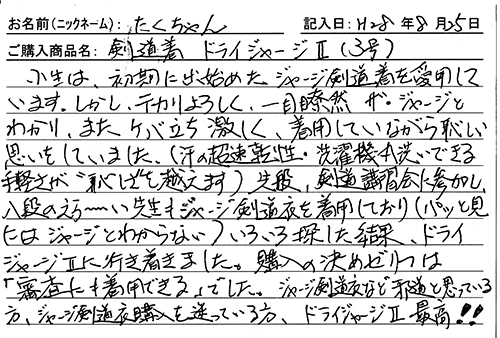 お名前(ニックネーム): たくちゃん 記入日: H28 年 8 月 25 日
ご購入商品名: 剣道着 ドライジャージⅡ(3号)
小生は、初期に出始めたジャージ剣道着を愛用して
います。しかし、テカりよろしく、一目瞭然 ザ・ジャージと
わかり、また ケバ立ち 激しく、着用していながら恥しい
思いをしていました、(汗の超速乾性・洗濯機丸洗いできる
手軽さが〝恥しさ〟を越えます) 先般、剣道講習会に参加し、
八段のえら〜い先生もジャージ剣道衣を着用しており(パッと見
にはジャージとわからない) いろいろ探した結果、ドライ
ジャージⅡに行き着きました。購入の決めどころは
「審査にも着用できる」でした。ジャージ剣道衣など邪道と思っている
方、ジャージ剣道衣購入を迷っている方、ドライジャージⅡ 最高!!